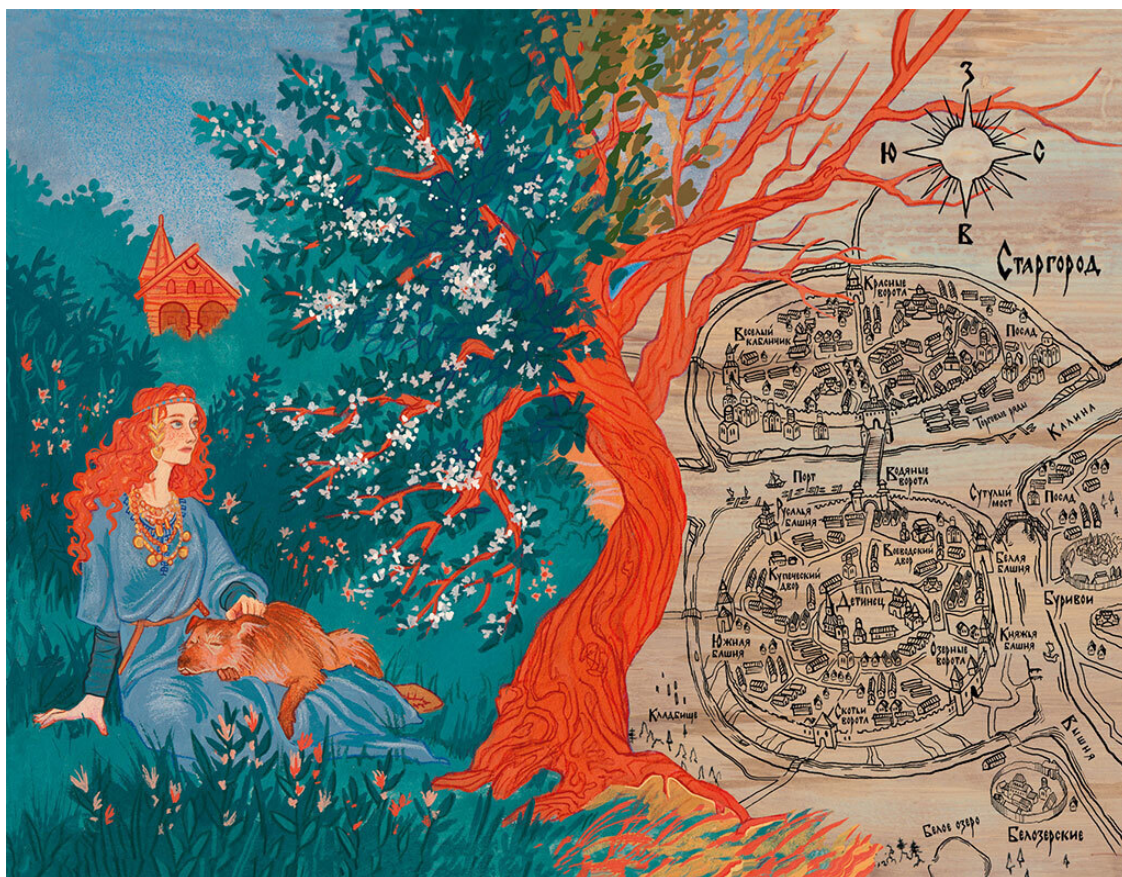 З
Ю
С
В
Старгород
Красные
ворота
Веселый
кабанчик
Посад
Торговые ряды
Калина
Порт
Водяные
ворота
Сутулый
мост
Посад
Русалья
башня
Воеводский
двор
Белая
башня
Купеческий
двор
Детинец
Буривои
Южная
башня
Озерные
ворота
Княжья
башня
Скотьи
ворота
Кладбище
Вышня
Белое озеро
Белозерские